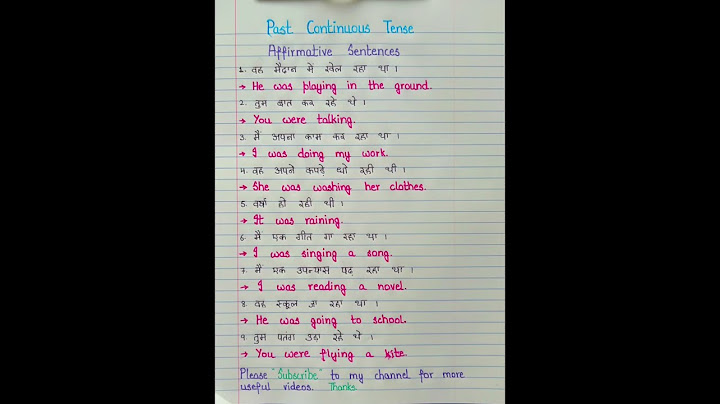 Past Continuous Tense
Affirmative Sentences
1. वह मैदान में खेल रहा था ।
→ He was playing in the ground.
2. तुम बात कर रहे थे ।
→ You were talking.
3. मैं अपना काम कर रहा था ।
→ I was doing my work.
4. वह अपने कपड़े धो रही थी ।
→ She was washing her clothes.
5. वर्षा हो रही थी ।
→ It was raining.
6. मैं एक गीत गा रहा था ।
→ I was singing a song.
7. मैं एक उपन्यास पढ़ रहा था ।
→ I was reading a novel.
8. वह स्कूल जा रहा था ।
→ He was going to school.
9. तुम पतंग उड़ा रहे थे ।
→ You were flying a kite.
Please "Subscribe" to my channel for more
useful videos. Thanks